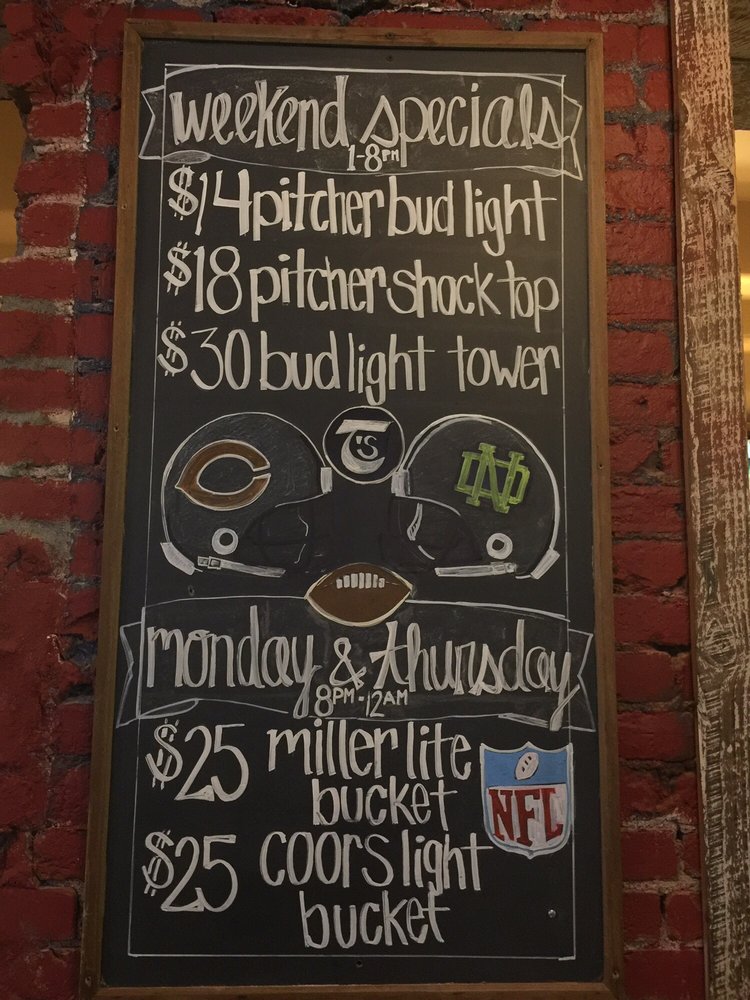 weekend specials
1-8PM
$14 pitcher bud light
$18 pitcher shock top
$30 bud light tower
T's
C
ND
monday & thursday
8PM-12AM
$25 miller lite
bucket
NFL
$25 coors light
bucket